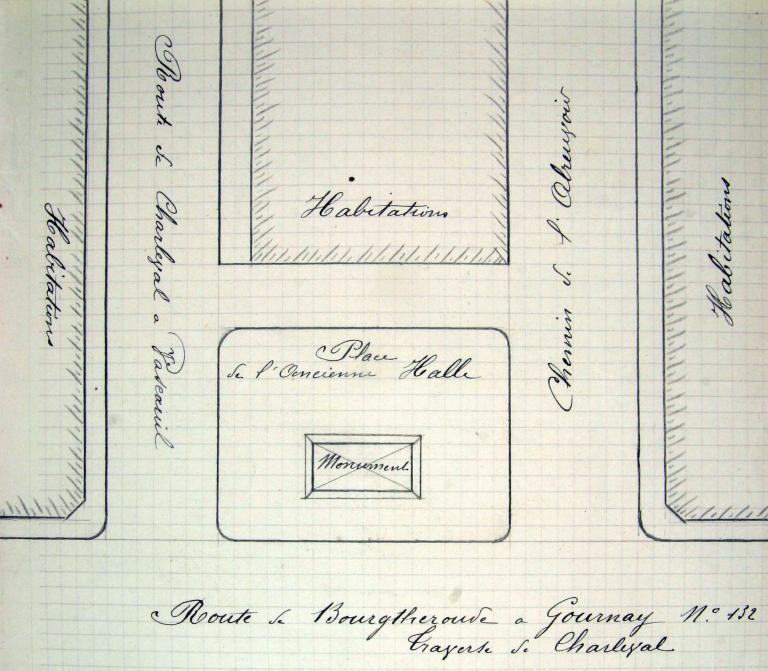 Route de Charleval a Vascœuil
Habitations
Habitations
Chemin de l'Abreuvoir
Habitations
Place
de l'Ancienne Halle
Monument
Route de Bourgtheroude a Gournay N.º 132
Traverse de Charleval